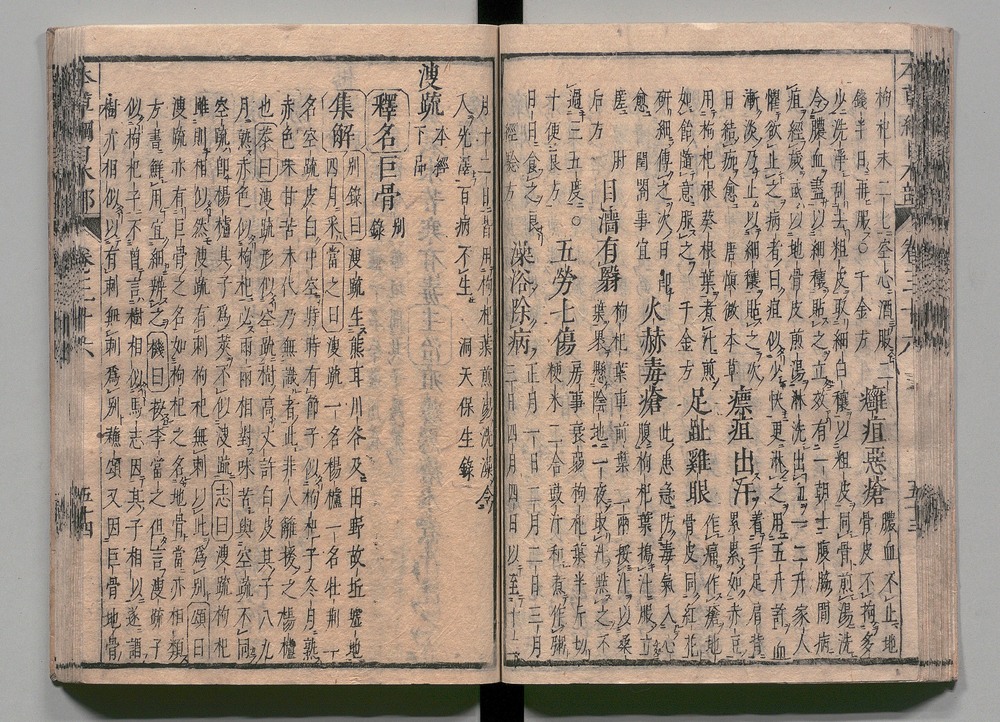 枸杞末二七空心酒服二
錢半日再服○千金方 癰疽惡瘡膿血不止地骨皮不拘多
少洗淨刮去粗皮取細白穰以粗皮同骨煎湯洗
令膿血盡以細穰貼之立效有一朝士腹脇間病
疽經歲或以地骨皮煎湯淋洗出血一二升家人
懼欲止之病者曰疽似少快更淋之用五升許血
漸淡乃止以細穰貼之次
日結痂愈 唐慎微本草 瘭疽出汗着手足肩背累累如赤豆
用枸杞根葵根葉煮汁煎
如飴隨意服之 千金方 足趾雞眼作痛作瘡地骨皮同紅花
研細傅之次日即
愈 閨閣事宜 火赫毒瘡此患急防毒氣入心腹枸杞葉搗汁服立
瘥 肘
后方 目濇有翳枸杞葉車前葉二兩挼汁以桑葉裹懸陰地一夜取汁點之不
過三五度○ 五勞七傷房事衰弱枸杞葉半斤切粳米二合豉汁和煮作粥
日日食之良
經驗方 澡浴除病正月一日二月二日三月三日四月四日以至十二
月十二日皆用枸杞葉煎湯洗澡令
人光澤百病不生 洞天保生錄
溲疏本經下品
釋名巨骨別錄
集解別錄曰溲疏生熊耳川谷及田野故丘墟地
四月采當之曰溲疏一名楊櫨一名牡荊一
名空疏皮白中空時時有節子似枸杞子冬月熟
赤色味甘苦末代乃無識者此非人籬援之楊櫨
也恭曰溲疏形似空疏樹高丈許白皮其子八九
月熟赤色似枸杞必兩兩相對味苦與空疏不同
空疏即楊櫨其子為莢不似溲疏志曰溲疏枸杞
雖則相似然溲疏有刺枸杞無刺以此為別頌曰
溲疏亦有巨骨之名如枸杞之名地骨當亦相類
方書鮮用宜細辨之機曰按李當之但言溲疏子
似枸杞子不曾言樹相似馬志因其子相似遂謂
樹亦相似以有刺無刺為別蘇頌又因巨骨地骨
卷三十六
五十四